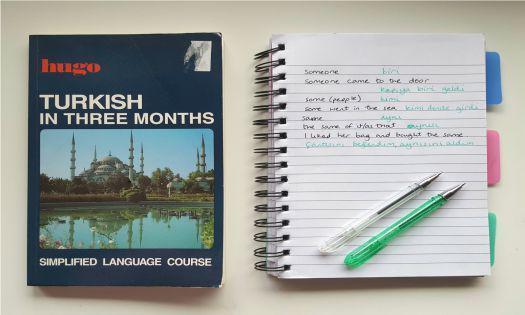 hugo
TURKISH
IN THREE MONTHS
SIMPLIFIED LANGUAGE COURSE
Someone biri
Someone came to the door
Kapıya biri geldi
some (people) kimi
some went in the sea kimi denize girdi
same aynı
the same of it/as that aynısı
I liked her bag and bought the same
Çantasını beğendim, aynısını aldım